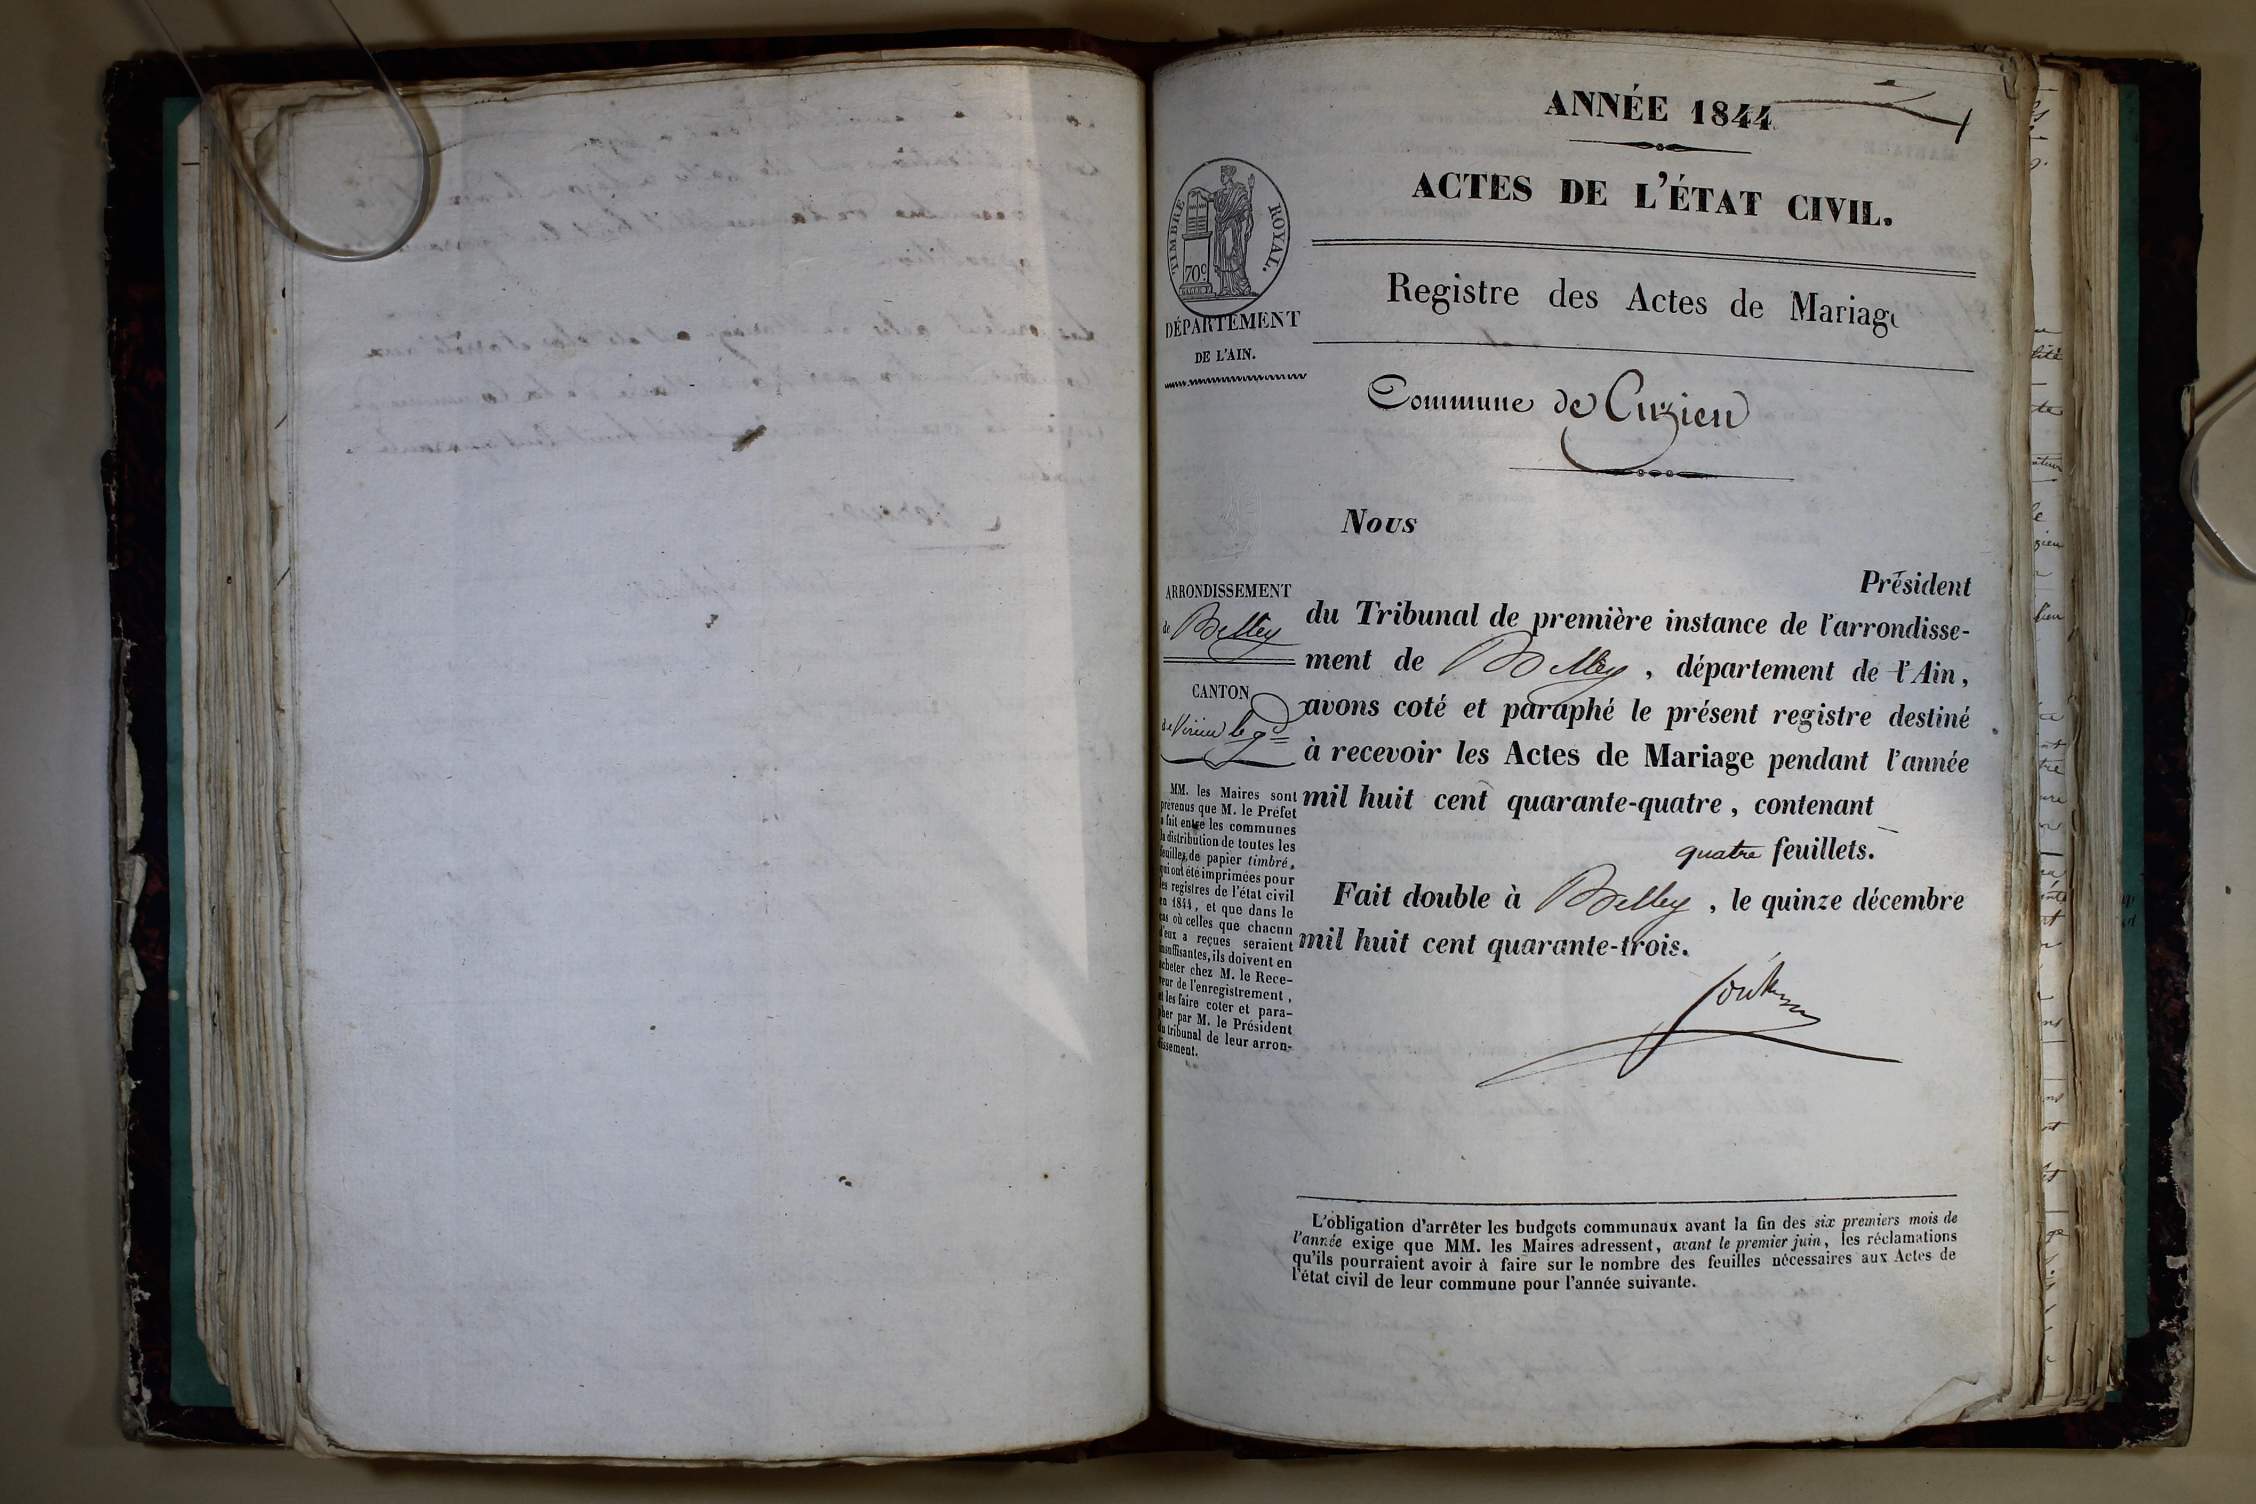 ANNÉE 1844
1
ACTES DE L'ÉTAT CIVIL.
TIMBRE ROYAL.
70c
DÉPARTEMENT
DE L'AIN.
Registre des Actes de Mariage
Commune de Cuzien
Nous
Président
ARRONDISSEMENT
de Belley
CANTON
de Virieu le gd
du Tribunal de première instance de l'arrondisse-
ment de Belley, département de l'Ain,
avons coté et paraphé le présent registre destiné
à recevoir les Actes de Mariage pendant l'année
mil huit cent quarante-quatre, contenant
quatre feuillets.
Fait double à Belley, le quinze décembre
mil huit cent quarante-trois.
MM. les Maires sont
prévenus que M. le Préfet
a fait entre les communes
la distribution de toutes les
feuilles de papier timbré,
qui ont été imprimées pour
les registres de l'état civil
en 1844, et que dans le
cas où celles que chacun
d'eux a reçues seraient
insuffisantes, ils doivent en
acheter chez M. le Rece-
veur de l'enregistrement,
et les faire coter et para-
pher par M. le Président
du tribunal de leur arron-
dissement.
L'obligation d'arrêter les budgets communaux avant la fin des six premiers mois de
l'année exige que MM. les Maires adressent, avant le premier juin, les réclamations
qu'ils pourraient avoir à faire sur le nombre des feuilles nécessaires aux Actes de
l'état civil de leur commune pour l'année suivante.